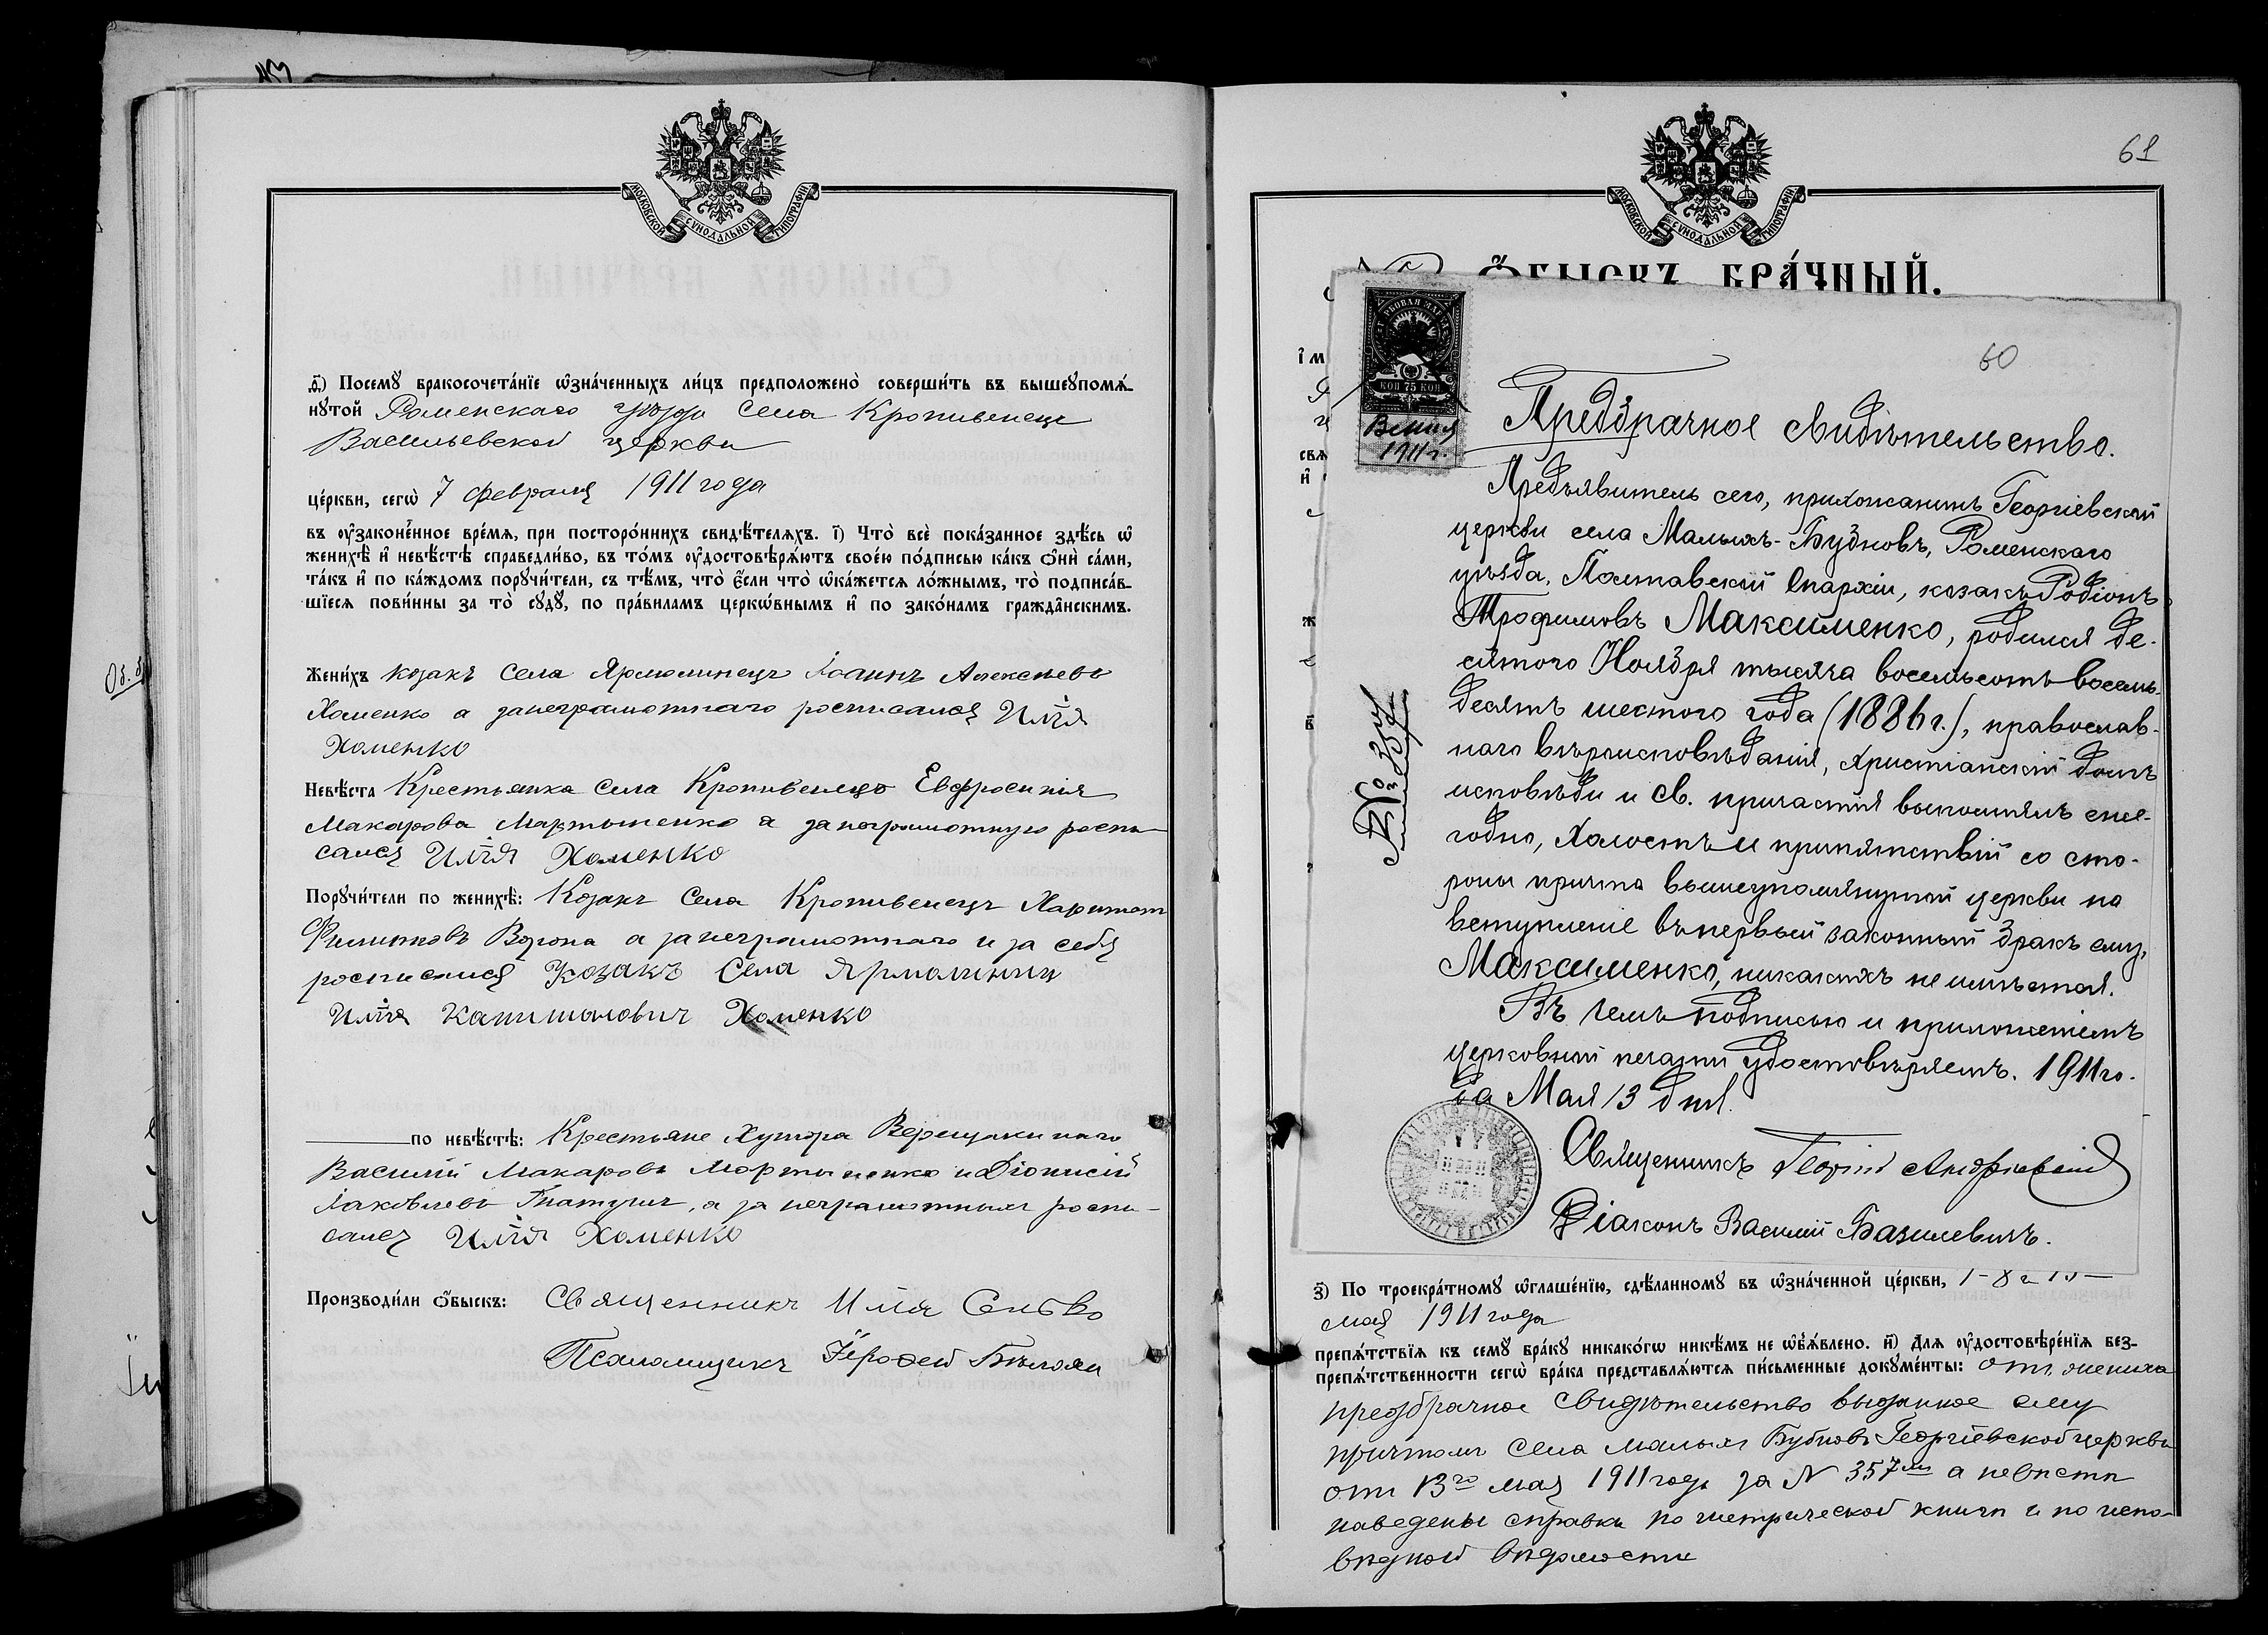 МОСКОВСКОЙ СѴНОДАЛЬНОЙ ТИПОГРАФІИ
д҃) Посемꙋ̀ бракосочета́нїе ѡ҆зна́ченныхъ ли́цъ предположено̀ соверши́ть въ вышеꙋпомѧ́-
нꙋтой Роменскаго уѣзда села Кропивенецъ
Васильевской церкви
це́ркви, сегѡ̀ 7 февраля 1911 года
въ ᲂу҆законе́нное вре́мѧ, при посторо́ннихъ свидѣ́телѧхъ. і҃) Что̀ всѐ пока́занное здѣ́сь ѡ҆
женихѣ̀ и҆ невѣ́стѣ справедли́во, въ то́мъ ᲂу҆достовѣрѧ́ютъ свое́ю по́дписью ка́къ ѻ҆нѝ са́ми,
та́къ и҆ по ка́ждомъ порꙋчи́тели, съ тѣ́мъ, что̀ є҆́сли что̀ ѡ҆ка́жетсѧ ло́жнымъ, то̀ подписа́в-
шїесѧ пови́нны за то̀ сꙋдꙋ̀, по пра́виламъ церко́внымъ и҆ по зако́намъ гражда́нскимъ.
Жени́хъ козакъ села Ярмолинецъ Іоаннъ Алексѣевъ
Хоменко а занеграмотнаго росписался Илія
Хоменко
Невѣ́ста Крестьянка села Кропивенецъ Евфросинія
Макарова Мартыненко а за неграмотную роспи-
сался Илія Хоменко
Порꙋчи́тели по женихѣ̀: Козакъ села Кропивенецъ Харитонъ
Филиповъ Ворона а за неграмотнаго и за себя
росписался Козакъ Села Ярмолинец
Илія Хоменко
по невѣ́стѣ: Крестьяне Хутора
Василій Макаровъ Мартыненко и Діонисій
Іаковлевъ а за неграмотныхъ роспи-
сался Илія Хоменко
Производи́ли ѻ҆́быскъ: Священникъ Илія
Псаломщикъ
61
МОСКОВСКОЙ СѴНОДАЛЬНОЙ ТИПОГРАФІИ
Ѻ҆́БЫСКЪ БРА́ЧНЫЙ.
ГЕРБОВАЯ МАРКА
КОП 75 КОП
1911 г.
60
Предбрачное свидѣтельство.
Предъявитель сего, прихожанинъ Георгіевской
церкви села Малыхъ-Бубновъ, Роменскаго
уѣзда, Полтавской Епархіи, козакъ Родіонъ
Трофимовъ Максименко, родился де-
сятого Ноября тысяча восемьсотъ восемь-
десятъ шестого года (1886 г.), православ-
наго вѣроисповѣданія, христіанскій долгъ
исповѣди и св. причастія выполнялъ еже-
годно, холостъ и припятствій со сто-
роны причта вышеупомянутой церкви на
вступленіе въ первый законный бракъ ему,
Максименко, никакихъ не имѣется.
Въ чемъ подписью и приложеніемъ
церковной печати удостовѣряемъ. 1911 го-
да Мая 13 дня.
№ 357
Священникъ Георгій Андріевскій
Діаконъ Василій Базилевичъ.
з҃) По троекра́тномꙋ ѡ҆глаше́нїю, сдѣ́ланномꙋ въ ѡ҆зна́ченной це́ркви, 1-8 и 15
мая 1911 года
препѧ́тствїѧ къ семꙋ̀ бра́кꙋ никако́гѡ никѣ́мъ не ѡ҆б̾ѧ́влено. и҃) Длѧ ᲂу҆достовѣре́нїѧ без-
препѧ́тственности сегѡ̀ бра́ка представлѧ́ютсѧ пи́сьменные докꙋме́нты: отъ жениха
предбрачное свидѣтельство выданное ему
причтомъ села Малыхъ Бубновъ Георгіевской церкви
отъ 13го мая 1911 года за № 357мъ а невѣсти
наведены справки по метрической книги и по испо-
вѣдной вѣдомости